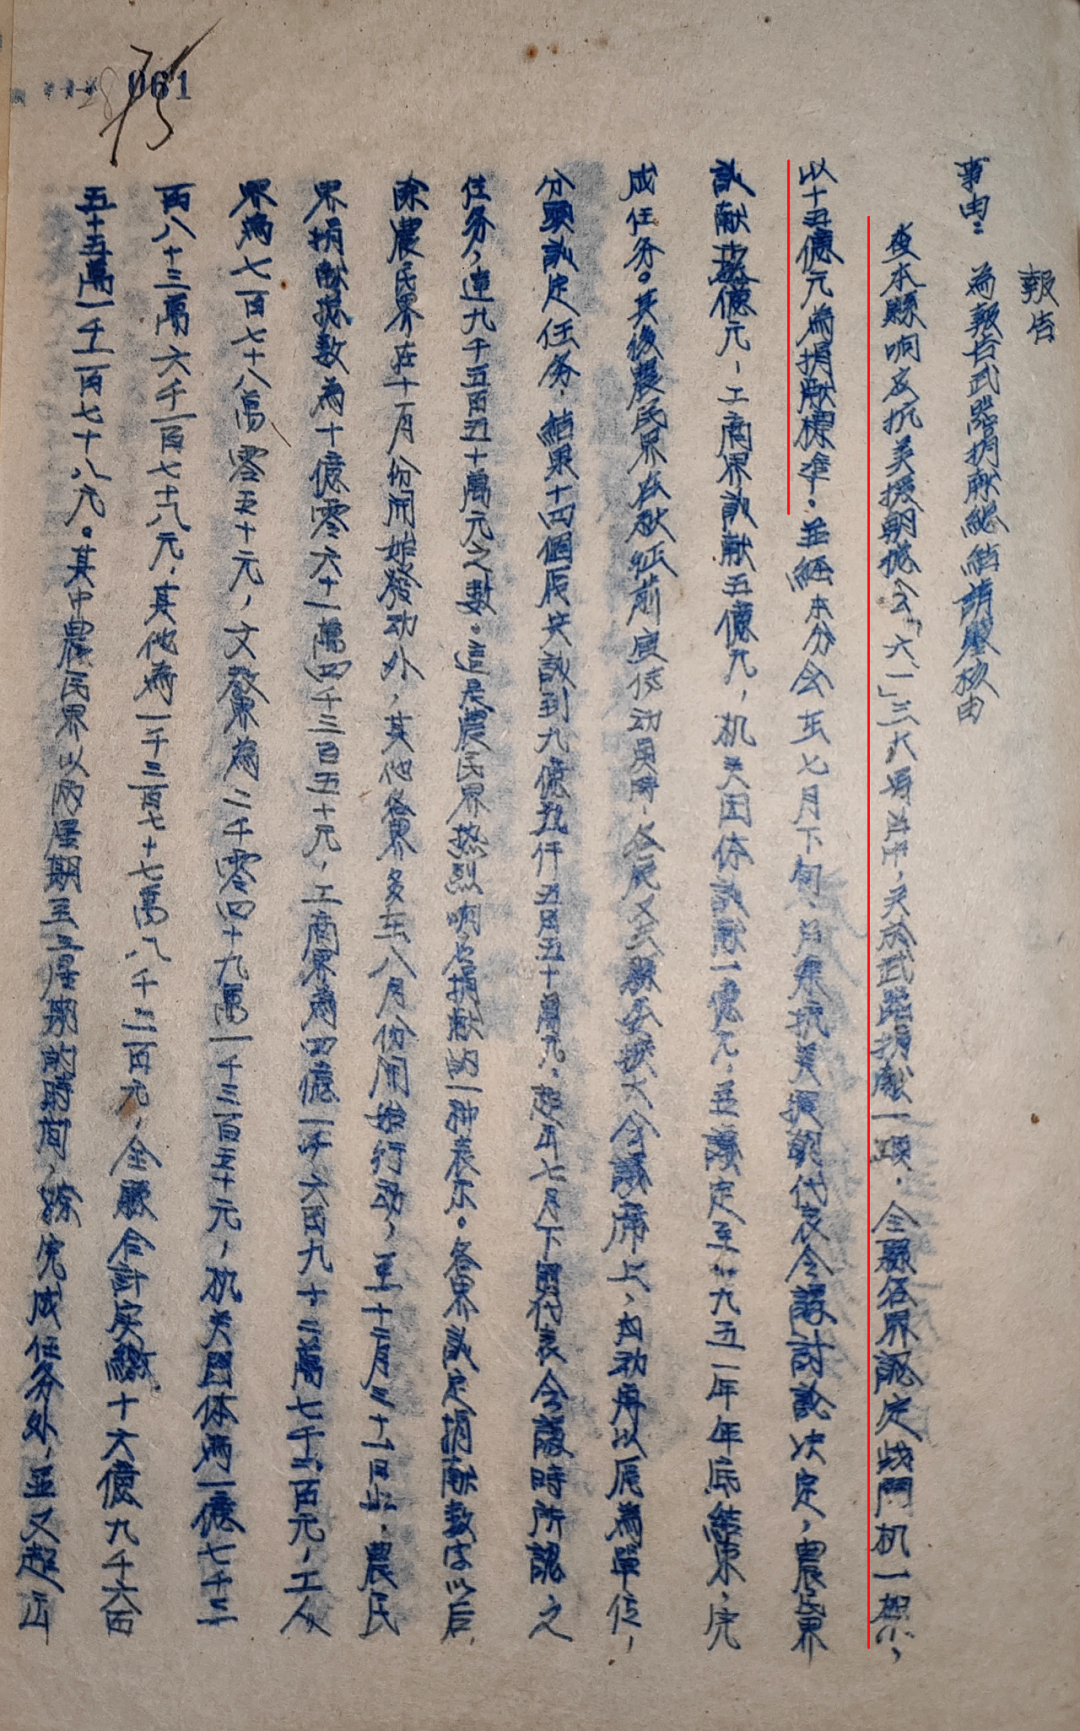 061
75
報告
事由：為報告武器捐献總結請鑒核由
查本縣响应抗美援朝總会「六一」三大号召中，关於武器捐献一項，全縣各界認定战鬥机一架，
以十五億元為捐献標準。並經本分会在七月下旬、召集抗美援朝代表会議討論决定，農民界
認献億元，工商界認献五億元，机关团体認献一億元，並議定至一九五一年年底結束，完
成任务。其後農民界在秋征前度动員時，各区又在縣扩大会議席上，自动再以区為單位，
分頭認定任务，結果十四個区共認到九億九仟五百五十萬元。超出七月下旬代表会議時所認之
任务，達九千五百五十萬元之数。這是農民界热烈响应捐献的一种表示。各界認定捐献数字以后，
除農民界在十一月份開始發动外，其他各界多在八月份開始行动，至十二月三十一日止，農民
界捐献总数為十億零六十一萬四千三百五十元，工商界為四億一千六百九十二萬七千二百元，工人
界為七百七十八萬零五十元，文敎界為二千零四十九萬一千三百五十元，机关团体為一億七千三
百八十三萬六千一百七十八元，其他為一千三百七十七萬八千二百元，全縣合計实繳十六億九千六百
五十五萬一千一百七十八元。其中農民界以两星期至三星期的時間，除完成任务外，並又超出